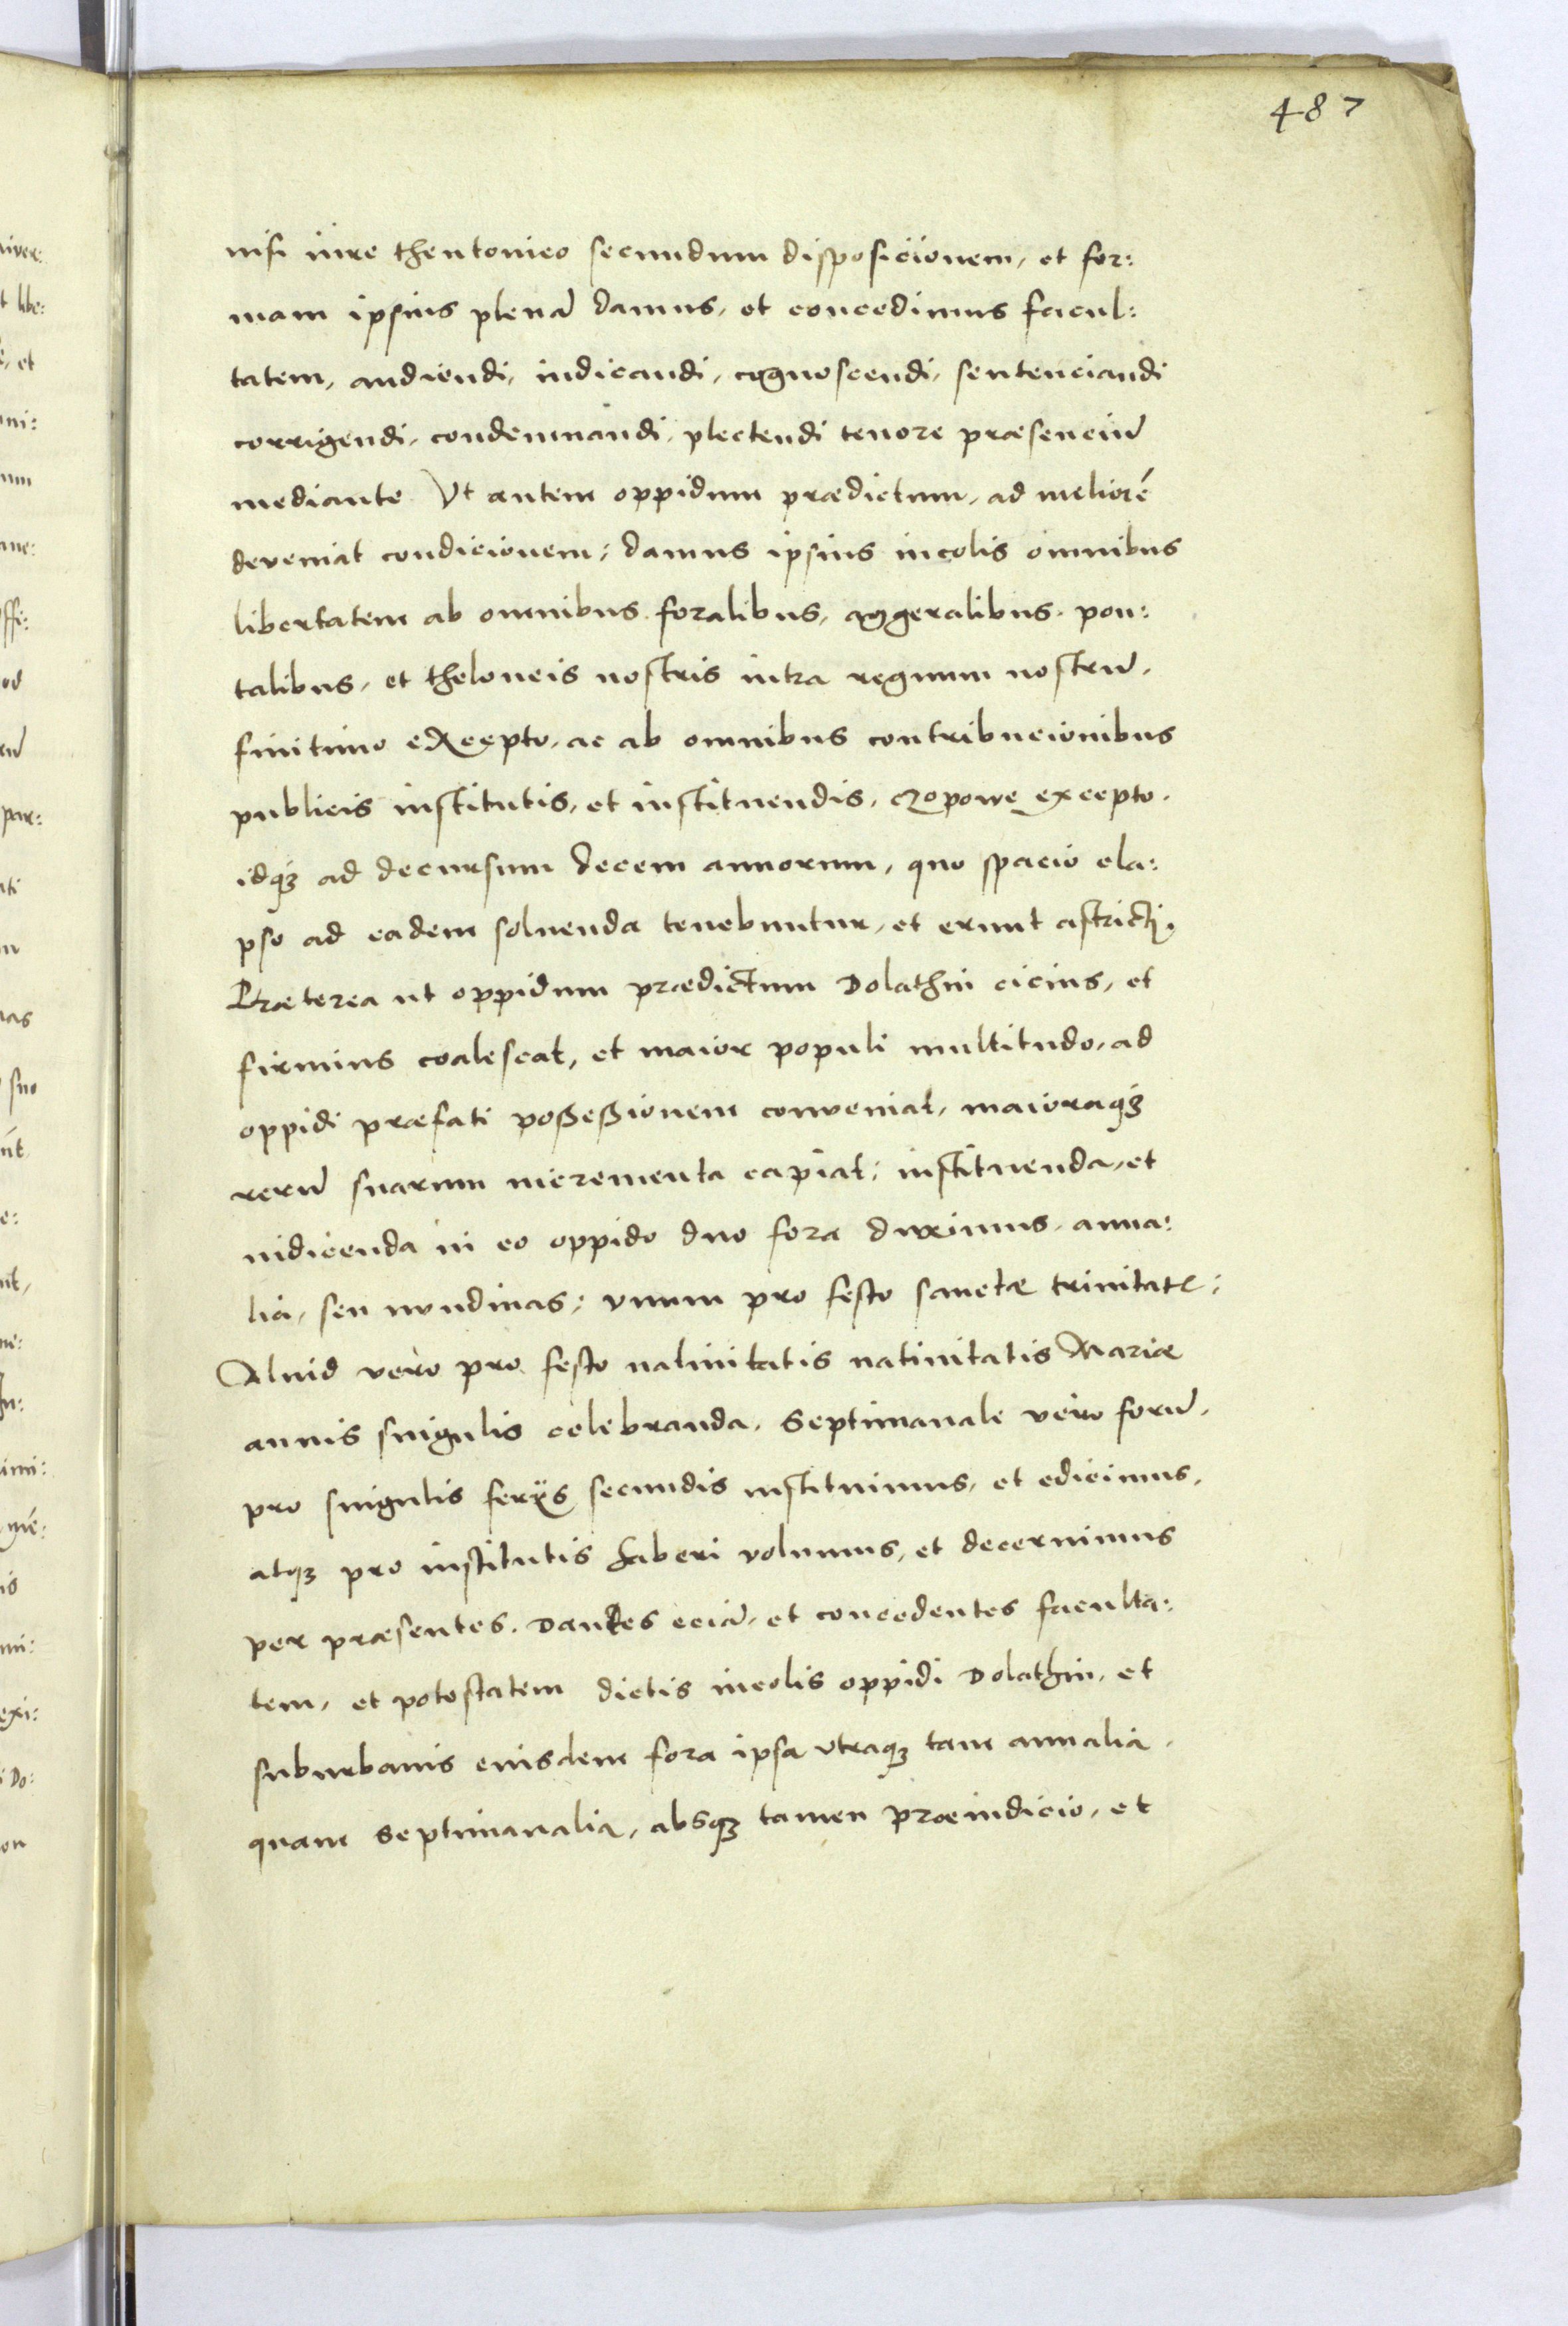 487
nisi iure theutonico secundum disposicionem, et for:
mam ipsius plenā damus, et concedimus facul:
tatem, audiendi, iudicandi, cognoscendi, sentenciandi
corrigendi, condemnandi, plectendi tenore præsenciū
mediante. Vt autem oppidum prædictum, ad meliorē
deveniat condicionem; damus ipsius incolis omnibus
libertatem ab omnibus foralibus, aggeralibus, pon:
talibus, et theloneis nostris intra regnum nostrū,
finitimo excepto, ac ab omnibus contribucionibus
publicis institutis, et instituendis, czopowe excepto.
idqꝫ ad decursum decem annorum, quo spacio ela:
pso ad eadem soluenda tenebuntur, et erunt astricti.
Præterea ut oppidum prædictum Dolathin cicius, et
firmius coalescat, et maior populi multitudo, ad
oppidi præfati possessionem conveniat, maioraqꝫ
rerū suarum incrementa capiat; instituenda, et
indicenda in eo oppido duo fora duximus, annа:
lia, seu nundinas; vnum pro festo sanctæ trinitatꝭ;
Aliud vero pro festo natiuitatis natiuitatis Mariæ
annis singulis celebranda. Septimanale vero forū,
pro singulis ferijs secundis instituimus, et edicimus,
atqꝫ pro institutis haberi volumus, et decernimus
per præsentes. Dantes eciā, et concedentes faculta:
tem, et potestatem dictis incolis oppidi Dolathin, et
suburbanis eiusdem fora ipsa vtraqꝫ tam annalia,
quam septimanalia, absqꝫ tamen præiudicio, et